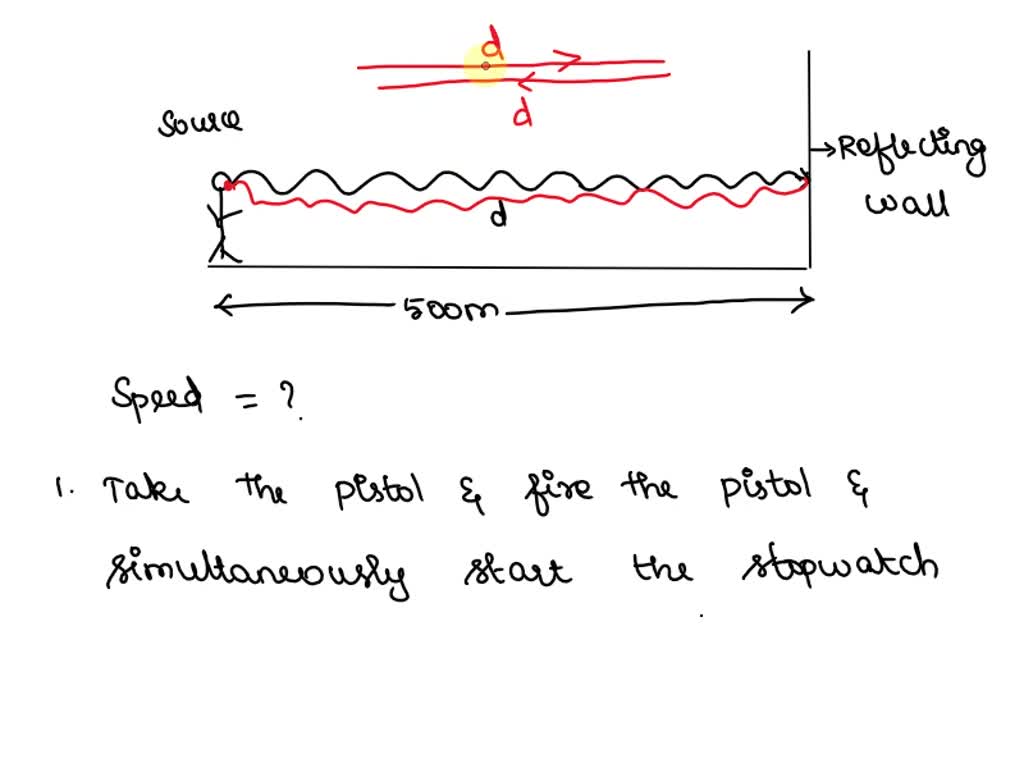 d
d
Source
Reflecting
wall
d
500m
Speed = ?
1. Take the pistol & fire the pistol &
simultaneously start the stopwatch